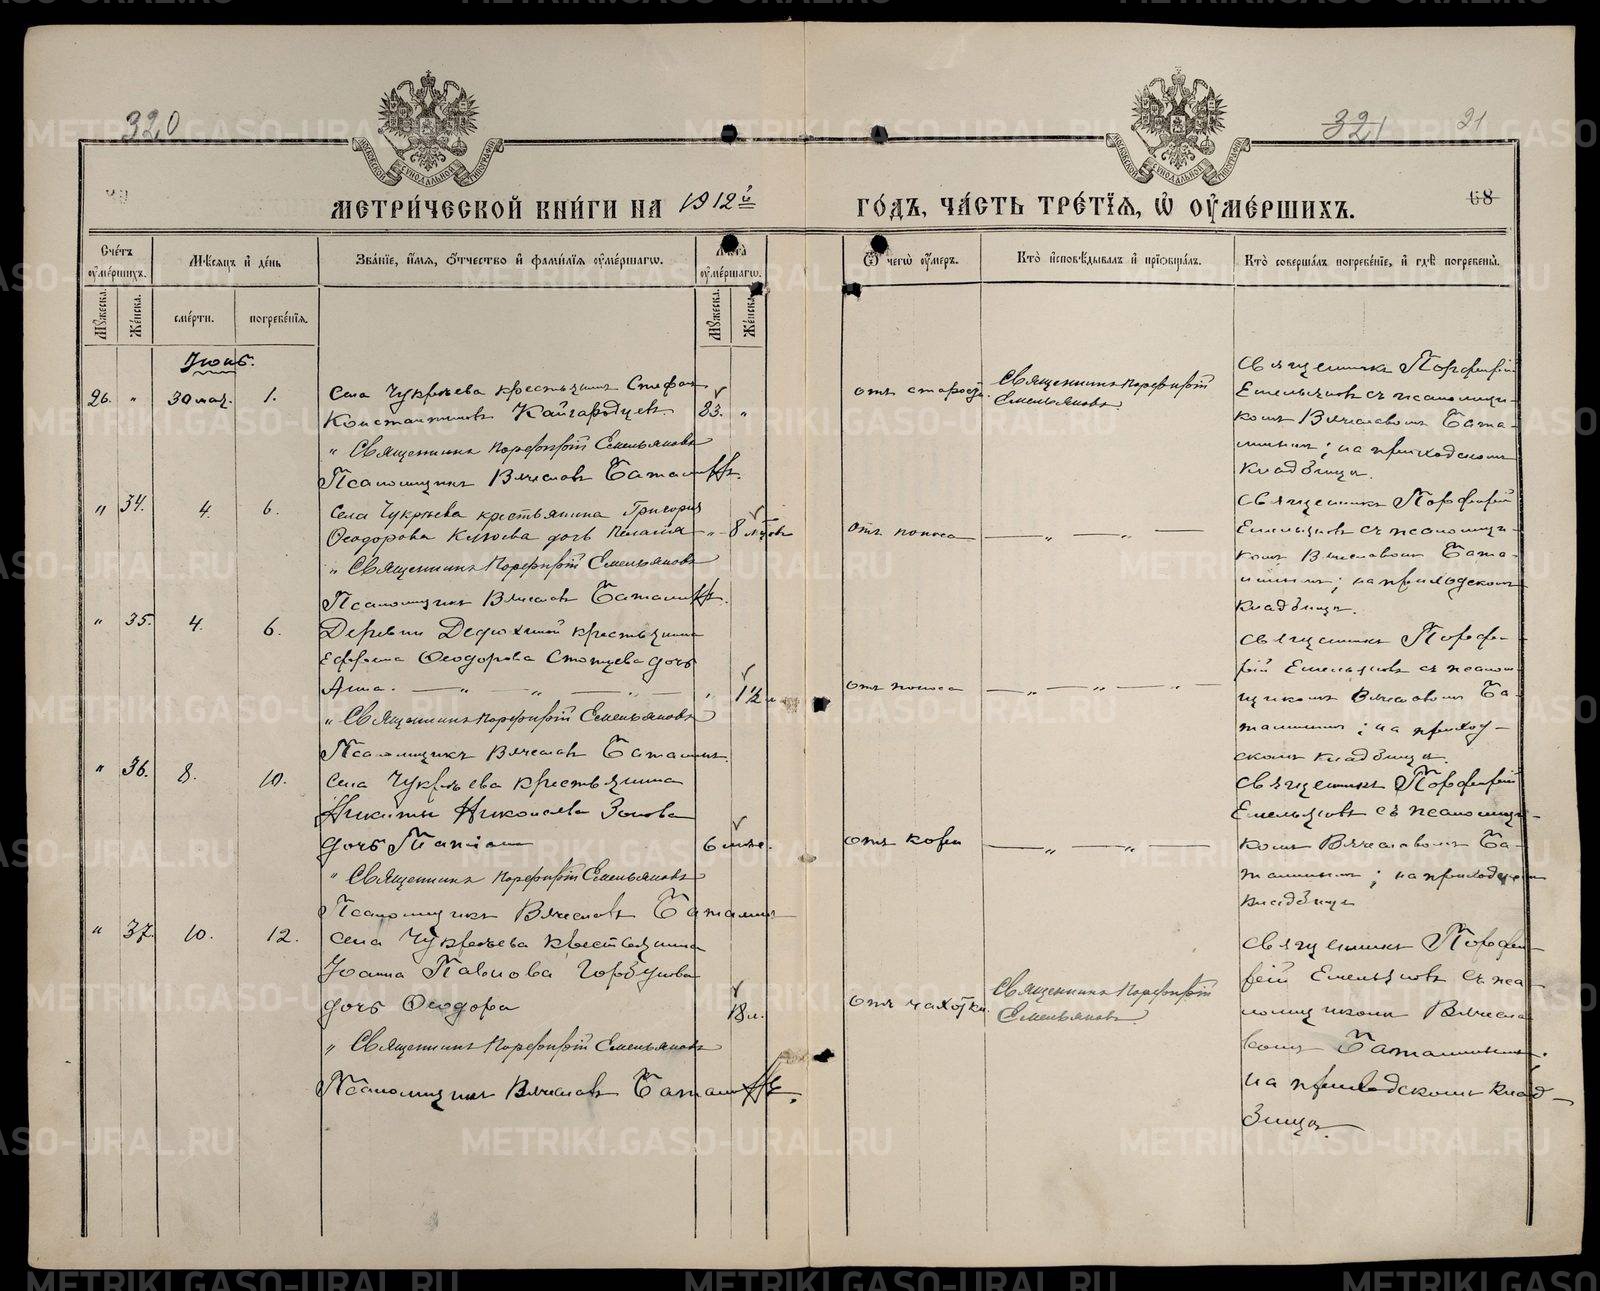 320
321
21
МОСКОВСКОЙ СѴНОДАЛЬНОЙ ТИПОГРАФІИ
МОСКОВСКОЙ СѴНОДАЛЬНОЙ ТИПОГРАФІИ
МЕТРИ́ЧЕСКОЙ КНИ́ГИ НА 1912й ГО́ДЪ, ЧА́СТЬ ТРЕ́ТІѦ, Ѡ ОУ҆МЕ́РШИХЪ.
68
Сче́тъ оу҆ме́ршихъ.
Мѣ́сяцъ и҆ де́нь
Зва́ніе, и҆́мѧ, ѻ҆́тчество и҆ фами́лїѧ оу҆ме́ршагѡ.
Лѣ́та оу҆ме́ршагѡ.
Ѿ чегѡ̀ оу҆́меръ.
Кто̀ и҆сповѣ́дывалъ и҆ прїѻбща́лъ.
Кто̀ соверша́лъ погребе́нїе, и҆ гдѣ̀ погребены̀.
Мꙋ́жеска.
Же́нска.
сме́рти.
погребе́нїѧ.
Мꙋ́жеска.
Же́нска.
Іюнь.
26. " 30 мая. 1. Села Чукрѣева крестьянинъ Стефан
Константиновъ Кайгародцевъ 83. "
" Священникъ Порфирій Емельяновъ
Псаломщикъ Вячеславъ Баталинъ.
отъ старости. Священникъ Порфирій
Емельяновъ.
Священникъ Порфирій
Емельяновъ съ псаломщи-
комъ Вячеславомъ Бата-
линымъ; на приходскомъ
кладбищѣ.
" 34. 4. 6. Села Чукрѣева крестьянина Григорія
Ѳеодорова дочь Пелагія " 8
" Священникъ Порфирій Емельяновъ
Псаломщикъ Вячеславъ Баталинъ.
отъ поноса — " — " —
Священникъ Порфирій
Емельяновъ съ псаломщи-
комъ Вячеславомъ Бата-
линымъ; на приходскомъ
кладбищѣ.
" 35. 4. 6. Деревни крестьянина
Ефрема Ѳеодорова дочь
Анна. — " — " — " — " 1½
" Священникъ Порфирій Емельяновъ
Псаломщикъ Вячеславъ Баталинъ.
отъ поноса — " — " — " —
Священникъ Порфи-
рій Емельяновъ съ псалом-
щикомъ Вячеславомъ Ба-
талинымъ; на приход-
скомъ кладбищѣ.
" 36. 8. 10. Села Чукрѣева крестьянина
Никиты Николаева Зонова
дочь Татіана 6 мѣс.
" Священникъ Порфирій Емельяновъ
Псаломщикъ Вячеславъ Баталинъ
отъ кори — " — " —
Священникъ Порфирій
Емельяновъ съ псаломщи-
комъ Вячеславомъ Ба-
талинымъ; на приходскомъ
кладбищѣ
" 37. 10. 12. Села Чукрѣева крестьянина
Іоанна Павлова Горбунова
дочь Ѳеодора 18 л.
" Священникъ Порфирій Емельяновъ
Псаломщикъ Вячеславъ Баталинъ.
отъ чахотки. Священникъ Порфирій
Емельяновъ.
Священникъ Порфи-
рій Емельяновъ съ пса-
ломщикомъ Вячесла-
вомъ Баталинымъ;
на приходскомъ клад-
бищѣ.
METRIKI.GASO-URAL.RU